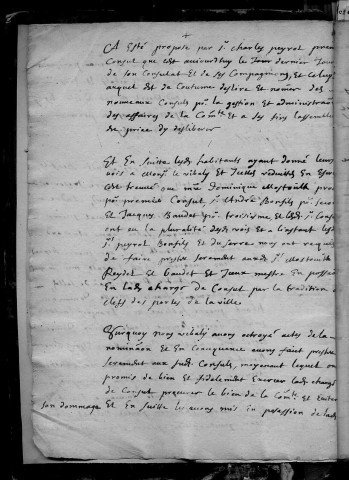 A Esté proposé par sr. charles peyrol premier
Consul que cest auiourdhuy le Jour dernier Jour
de son Consulat Et de ses Compagnons, Et celuy
auquel Est de Coutume deslire et nomer des
nouueaux Consuls pr. la gestion et administration
des affaires de la Comté Et a ses fins lassemblee
de priere dy desliberer
Et En Suitte lesd. habitants ayant donné leurs
voix a Monsr. le
este trouué que me. dominique
pr. premier Consul, sr. André Bonfils pr. second
Et Jacques Baudet pr. troisieme, et lesd. srs. Consuls
ont eu la pluralité des voix Et a lastant les
sr. peyrol Bonfils Et du serre nous ont requis
de faire prester serement ausd. srs.
Et Baudet Et Iceux mettre En possession
En lad. charge de Consul par la tradition des
clefs des portes de la ville
Surquoy nous auons octroyé actes de la
nomination Et En Consequance auons faict prester
serement aux susd. Consuls, moyenant lequel ont
promis de bien Et fidelement Exercer lad. charge
de Consul procurer le bien de la Comté. Et Euiter
son dommage Et En Suitte les auons mis en possession de lad.